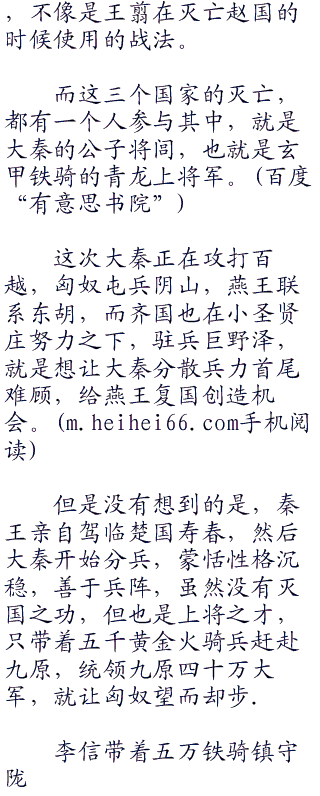 ，不像是王翦在灭亡赵国的
时候使用的战法。
而这三个国家的灭亡，
都有一个人参与其中，就是
大秦的公子将闾，也就是玄
甲铁骑的青龙上将军。(百度
“有意思书院”)
这次大秦正在攻打百
越，匈奴屯兵阴山，燕王联
系东胡，而齐国也在小圣贤
庄努力之下，驻兵巨野泽，
就是想让大秦分散兵力首尾
难顾，给燕王复国创造机
会。(m.heihei66.com手机阅
读)
但是没有想到的是，秦
王亲自驾临楚国寿春，然后
大秦开始分兵，蒙恬性格沉
稳，善于兵阵，虽然没有灭
国之功，但也是上将之才，
只带着五千黄金火骑兵赶赴
九原，统领九原四十万大
军，就让匈奴望而却步.
李信带着五万铁骑镇守
陇